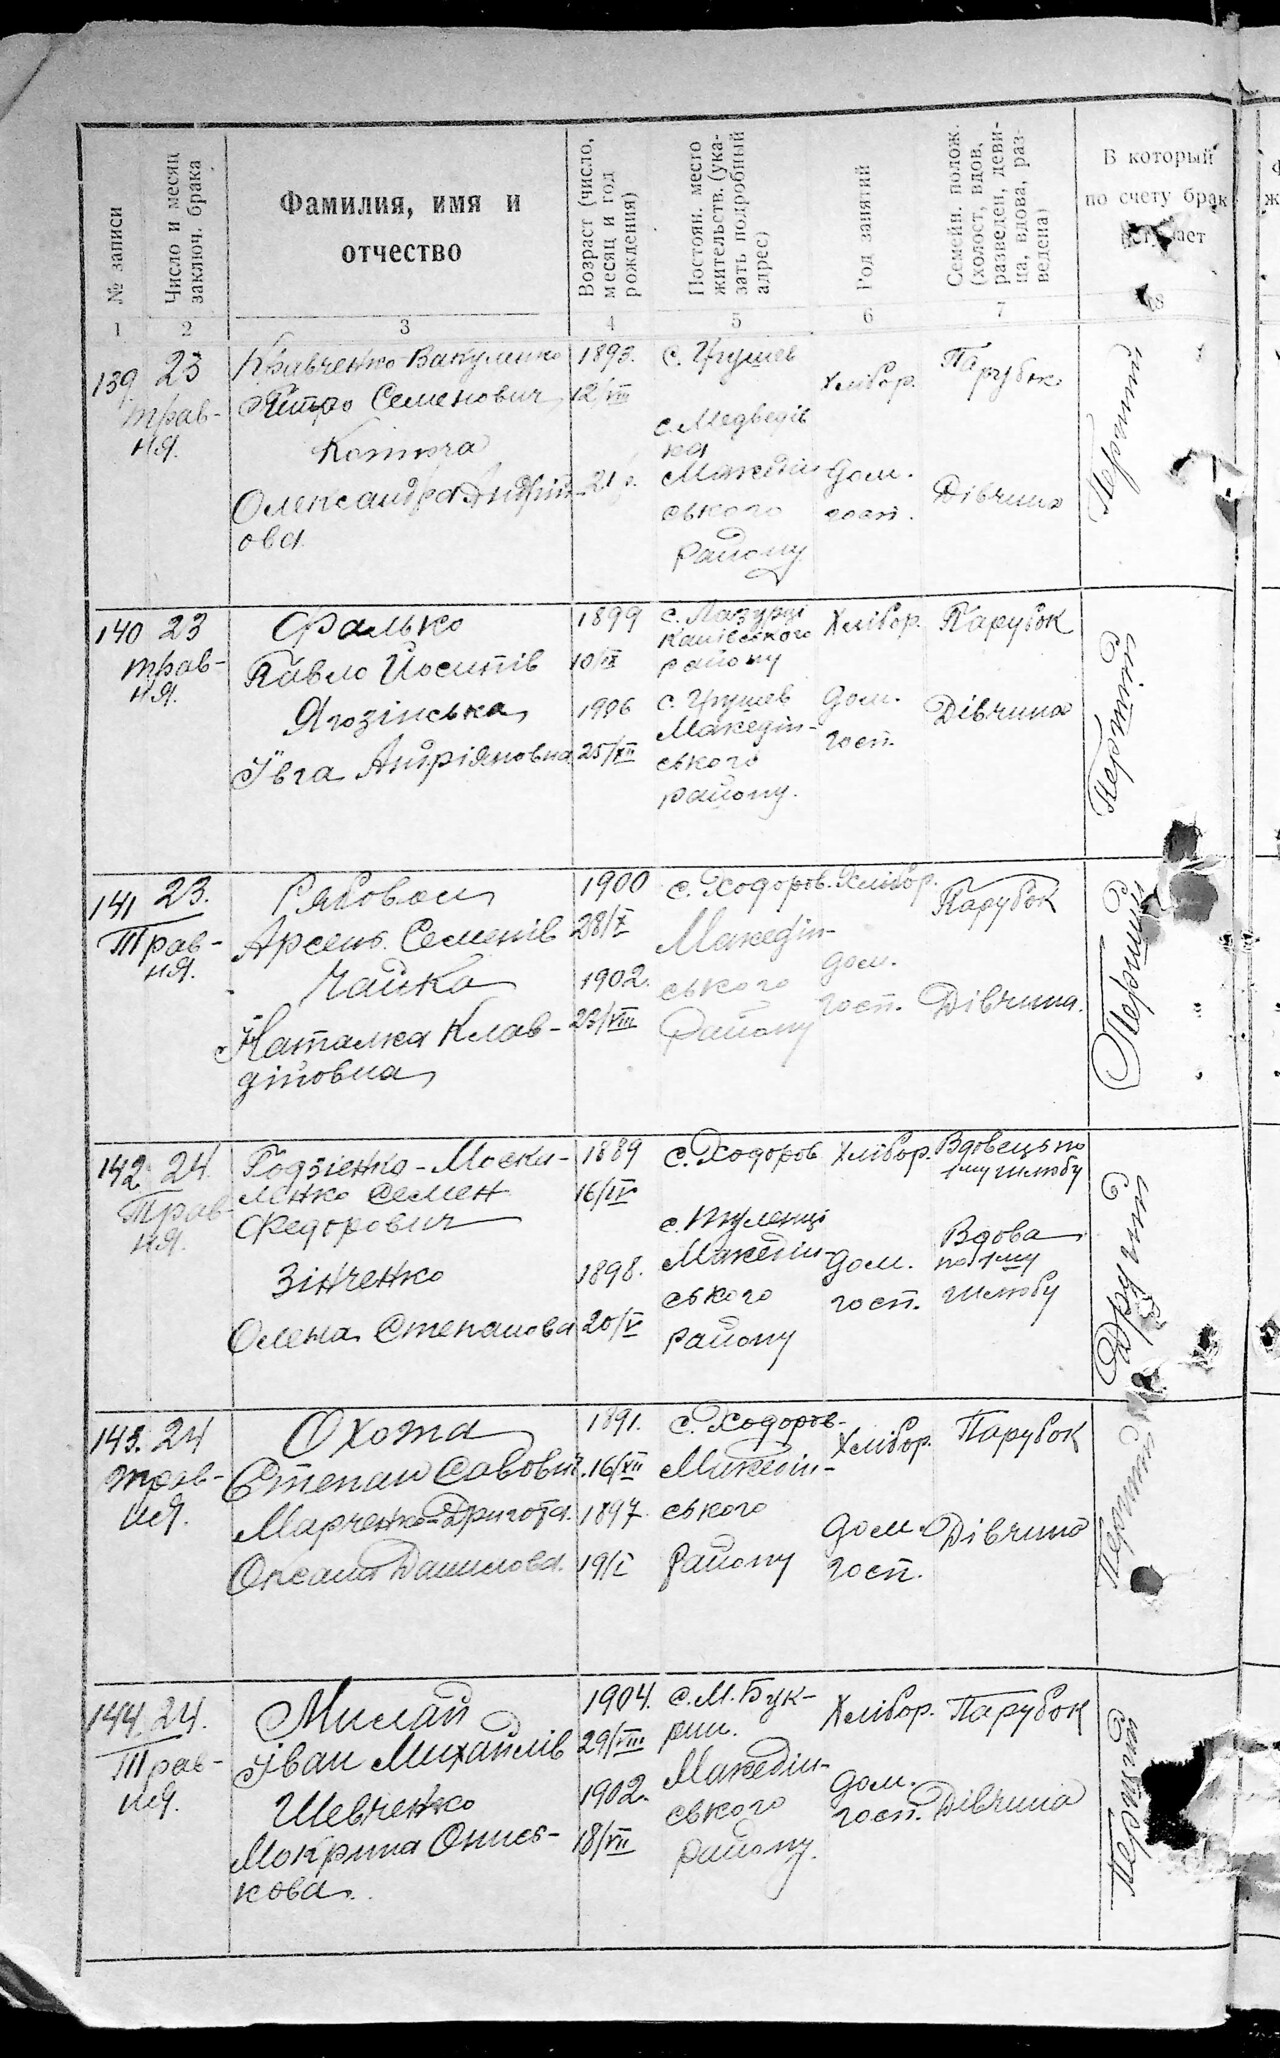 № записи
Число и месяц заключ. брака
Фамилия, имя и
отчество
Возраст (число, месяц и год рождения)
Постоян. место жительств. (указать подробный адрес)
Род занятий
Семейн. полож. (холост, вдов, разведен, девина, вдова, разведена)
В который
по счету брак
1 2 3 4 5 6 7 8
139 23 Кравченко-Вакуленко 1893. с. Грушев Хлібор. Парубок Перший
трав- Петро Семенович 12/VIII
ня.
с. Медведів
ка
Македін- Дом.
Олександра Андрій- 21 р. ського госп. Дівчина
ова району
140 23 Фалько 1899 с. Лазурці Хлібор. Парубок Перший
трав- Павло Йосипів 10/IX Канівського
ня. району
Ягозінська 1906 с. Грушев Дом. Дівчина
Івга Андріяновна 25/XII Македін- госп.
ського
району.
141 23. Рябовол 1900 с. Ходоров. Хлібор. Парубок Перший
Трав- Арсень Семенів 28/X Македін-
ня. Чайка 1902. ського Дом.
Наталка Клав- 23/VIII Району госп. Дівчина.
дійовна
142 24 Родзіенко-Моски- 1889 с. Ходоров Хлібор. Вдовець по
Трав- ленко Семен 16/IV 1му шлюбу
ня. Федорович Другий
с. Тулинці
Зінченко 1898. Македін- Дом. Вдова
ського госп. по 1му
Олена Степанова 20/V Району шлюбу
143. 24 Охота 1891. с. Ходоров- Хлібор. Парубок Перший
трав- Степан Савовіч. 16/VII Македін-
ня. Марченко-Дригота. 1897. ського Дом. Дівчина
Оксана Данилова. 19/I Району госп.
144. 24. Милай 1904. с. М. Бук- Хлібор. Парубок Перший
Трав- Іван Михайлів 29/VIII рин.
ня. Шевченко 1902. Македін- Дом.
Мокрина Онись- 18/VII ського госп. Дівчина
кова. району.